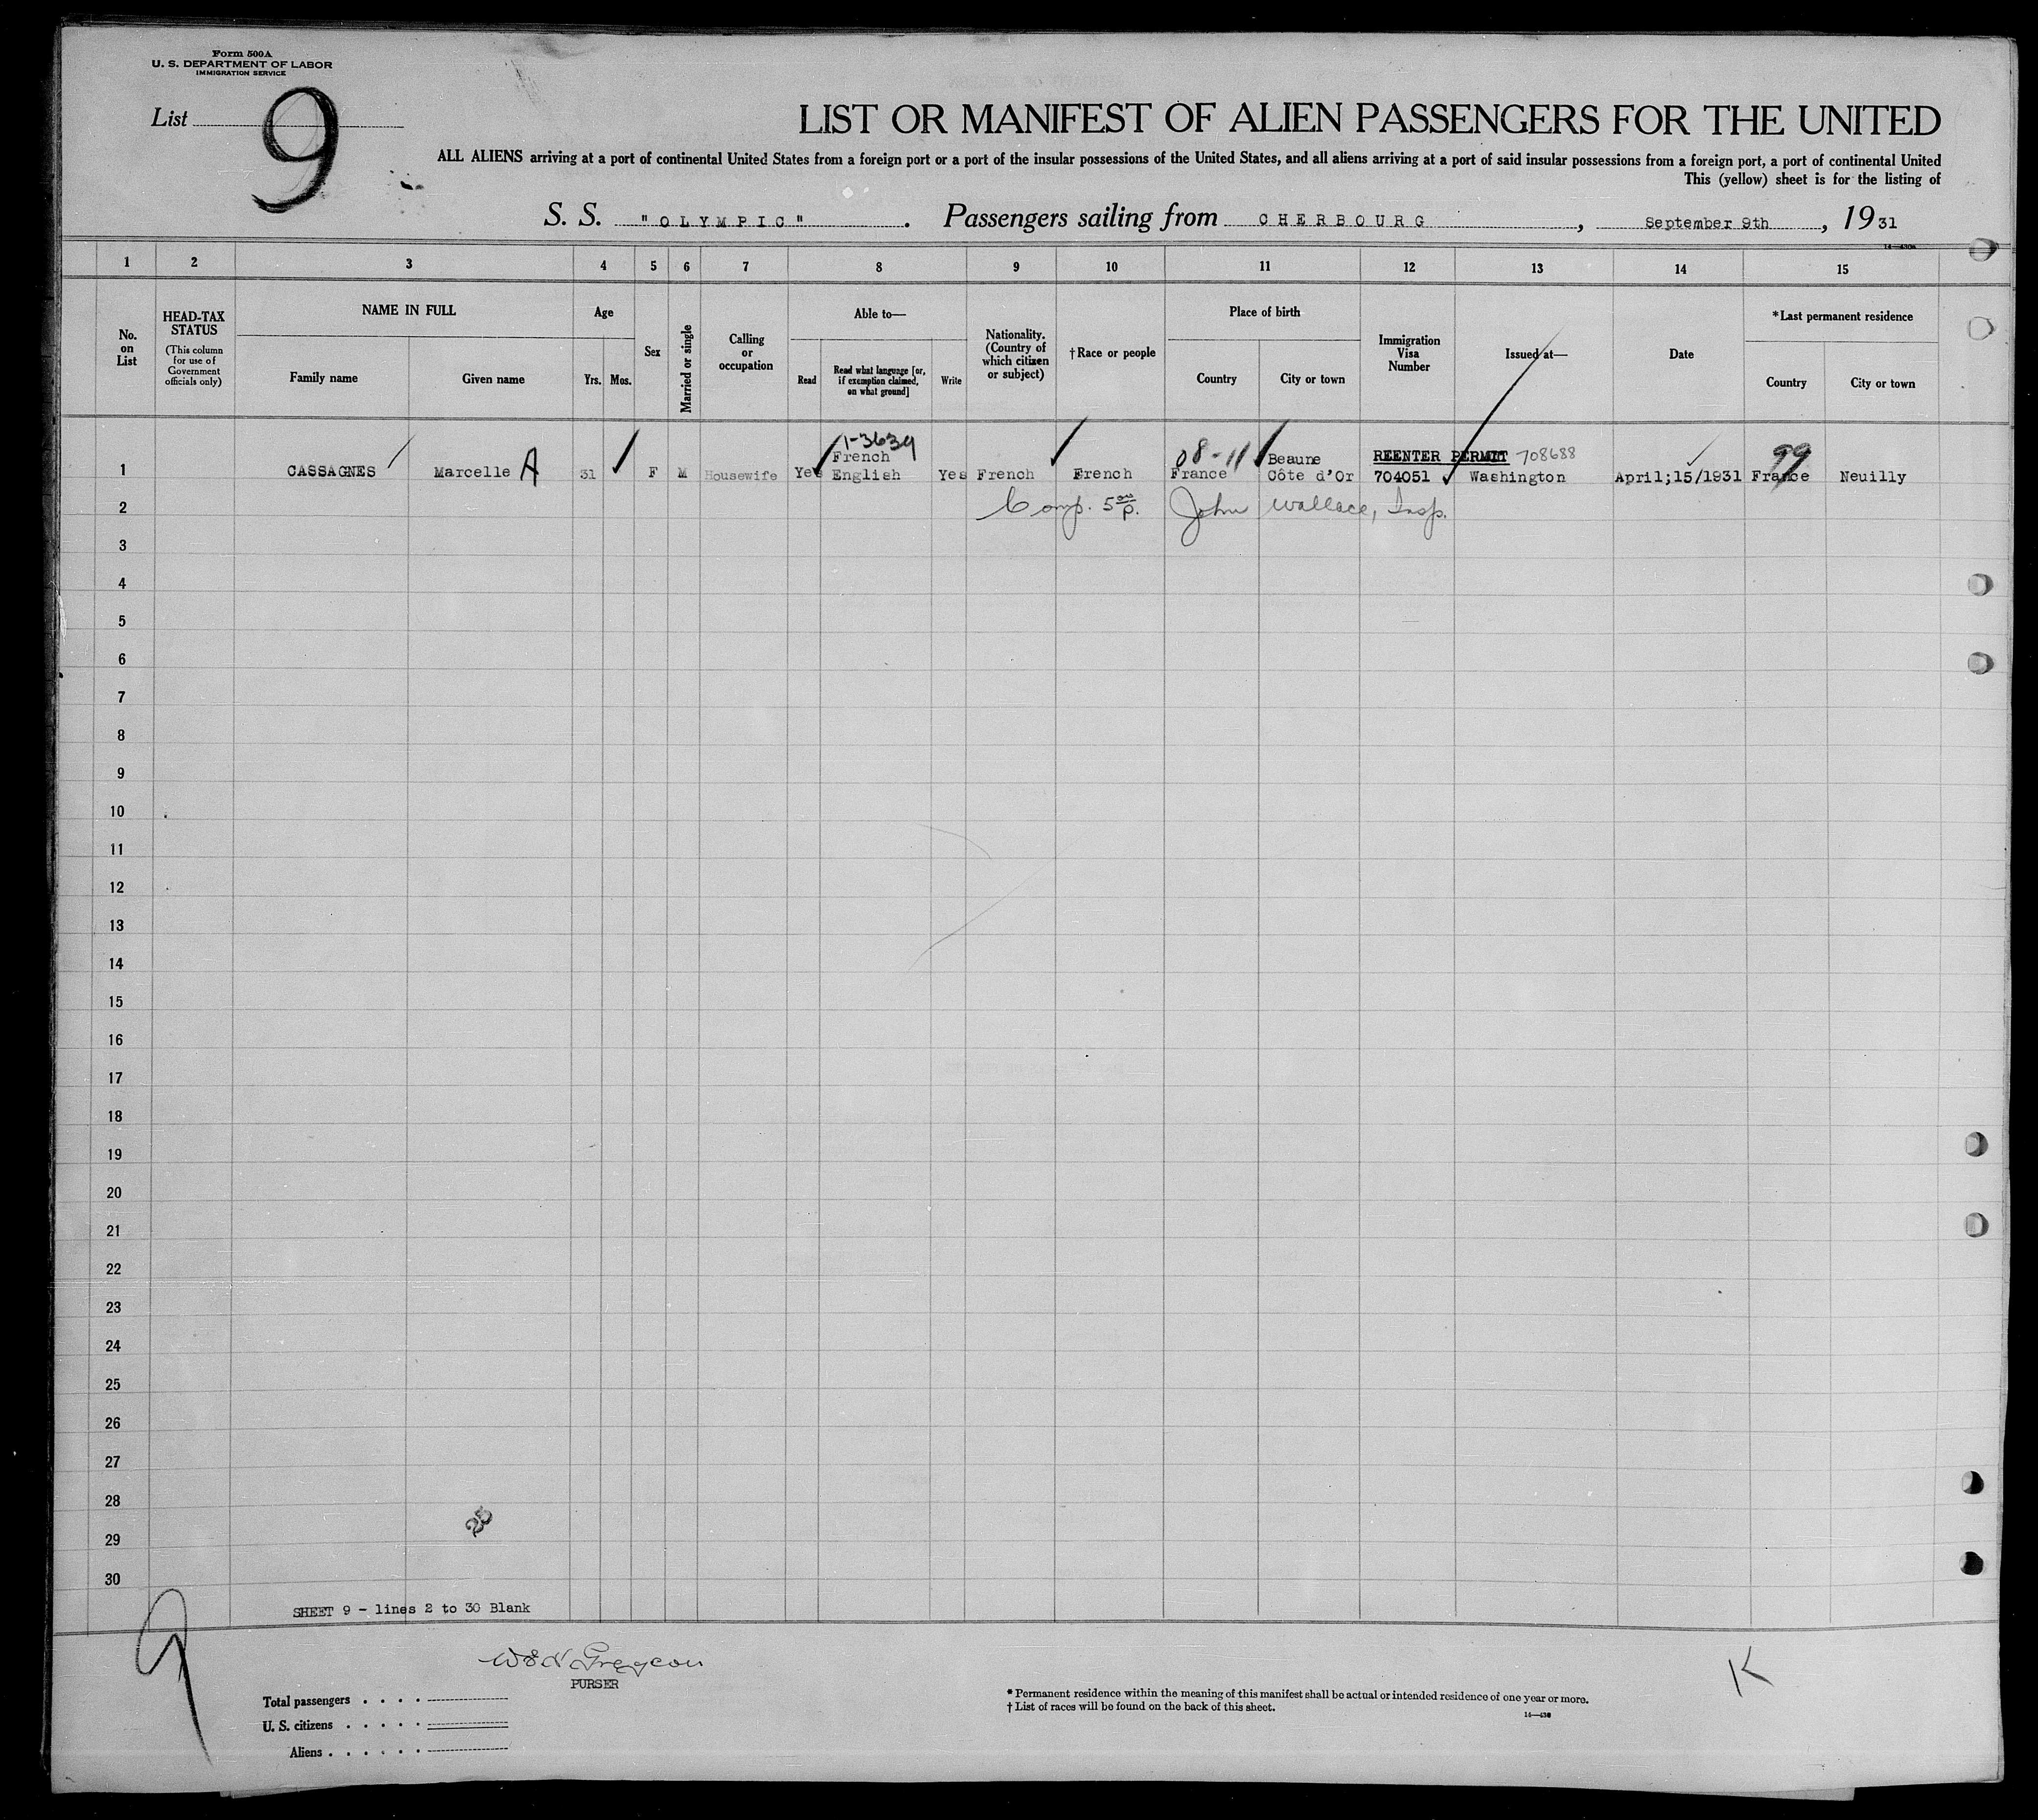 Form 500A
U. S. DEPARTMENT OF LABOR
IMMIGRATION SERVICE
List 9
LIST OR MANIFEST OF ALIEN PASSENGERS FOR THE UNITED
ALL ALIENS arriving at a port of continental United States from a foreign port or a port of the insular possessions of the United States, and all aliens arriving at a port of said insular possessions from a foreign port, a port of continental United
This (yellow) sheet is for the listing of
S. S. "OLYMPIC". Passengers sailing from CHERBOURG, September 9th, 1931
1 2 3 4 5 6 7 8 9 10 11 12 13 14 15
No. on List
HEAD-TAX STATUS
(This column for use of Government officials only)
NAME IN FULL
Family name
Given name
Age
Yrs.
Mos.
Sex
Married or single
Calling or occupation
Able to—
Read
Read what language [or, if exemption claimed, on what ground]
Write
Nationality. (Country of which citizen or subject)
†Race or people
Place of birth
Country
City or town
Immigration Visa Number
Issued at—
Date
*Last permanent residence
Country
City or town
1-3639
08-11
REENTER PERMIT 708688
99
1 CASSAGNES Marcelle A 31 F M Housewife Yes French English Yes French French France Beaune Côte d'Or 704051 Washington April;15/1931 France Neuilly
2 Comp. 5 P. John Wallace, Insp.
3
4
5
6
7
8
9
10
11
12
13
14
15
16
17
18
19
20
21
22
23
24
25
26
27
28
29
30
SHEET 9 - lines 2 to 30 Blank
9
PURSER
K
Total passengers . . . .
U. S. citizens . . . . .
Aliens . . . . . .
* Permanent residence within the meaning of this manifest shall be actual or intended residence of one year or more.
† List of races will be found on the back of this sheet.